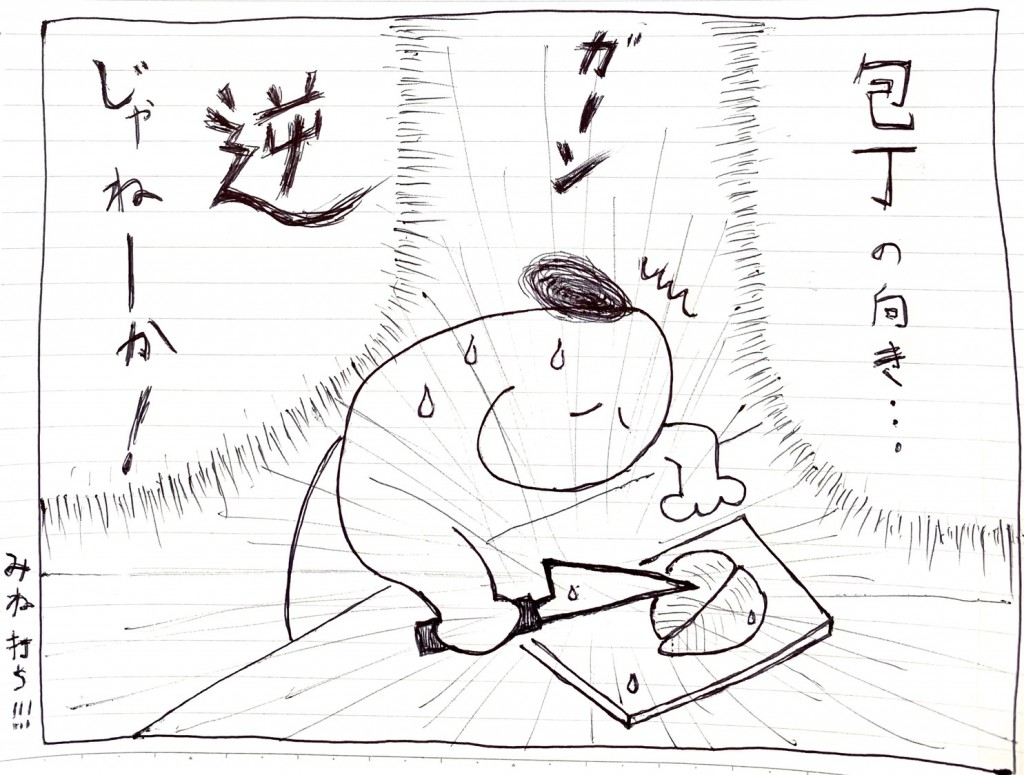 包丁の向き…
ガーン
逆
じゃねーか！
みね打ち!!!